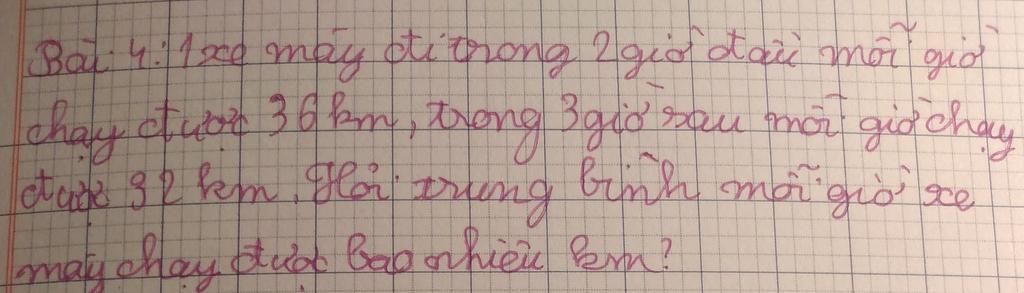 Bài 4: 1 xe máy đi trong 2 giờ đầu mỗi giờ
chạy được 36 km, trong 3 giờ sau mỗi giờ chạy
được 32 km. Hỏi trung bình mỗi giờ xe
máy chạy được bao nhiêu km?